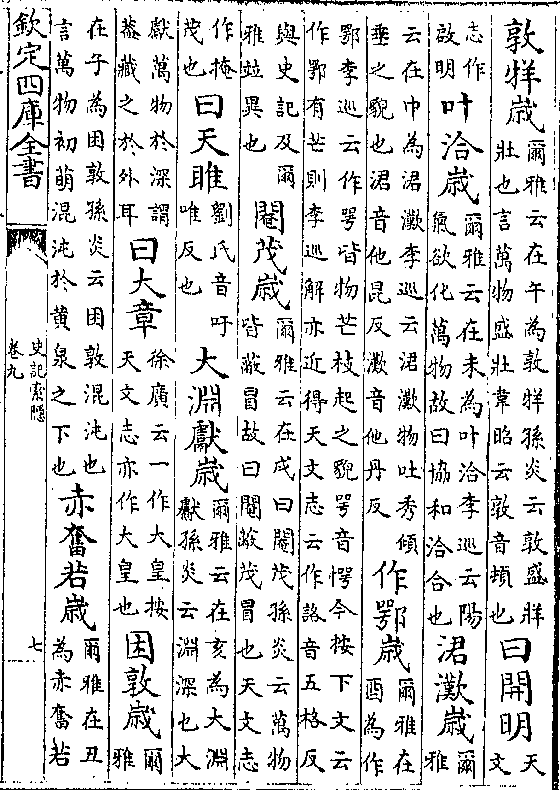 敦牂歲爾雅云在午為敦牂孫炎云敦盛牂壯也言萬物盛壯韋昭云敦音頓也曰開明天文
志作啟明叶洽歲爾雅云在未為叶洽李巡云陽氣欲化萬物故曰協和洽合也涒灘歲爾雅
云在申為涒灘李巡云涒灘物吐秀傾垂之貌也涒音他昆反灘音他丹反作鄂歲爾雅在酉為作
鄂李巡云作咢皆物芒枝起之貌咢音愕今按下文云作鄂有芒則李巡解亦近得天文志云作詻音五格反
與史記及爾雅並異也閹茂歲爾雅云在戌曰閹茂孫炎云萬物皆蔽冒故曰閹蔽茂冒也天文志
作掩茂也曰天睢劉氏音吁唯反也大淵獻歲爾雅云在亥為大淵獻孫炎云淵深也大
獻萬物於深謂蓋藏之於外耳曰大章徐廣云一作大皇按天文志亦作大皇也困敦歲爾雅
在子為困敦孫炎云困敦混沌也言萬物初萌混沌於黄泉之下也赤奮若歲爾雅在丑為赤奮若
欽定四庫全書
史記索隱
卷九
七